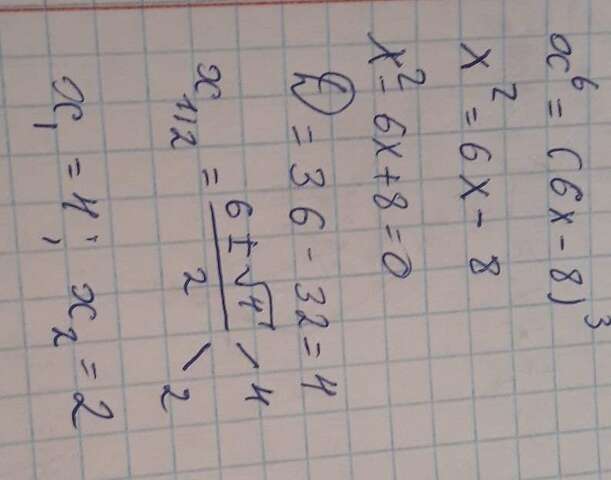 x⁶ = (6x - 8)³
x² = 6x - 8
x² - 6x + 8 = 0
D = 36 - 32 = 4
x₁,₂ = (6 ± √4)/2 ⟋ 4 ⟍ 2
x₁ = 4; x₂ = 2